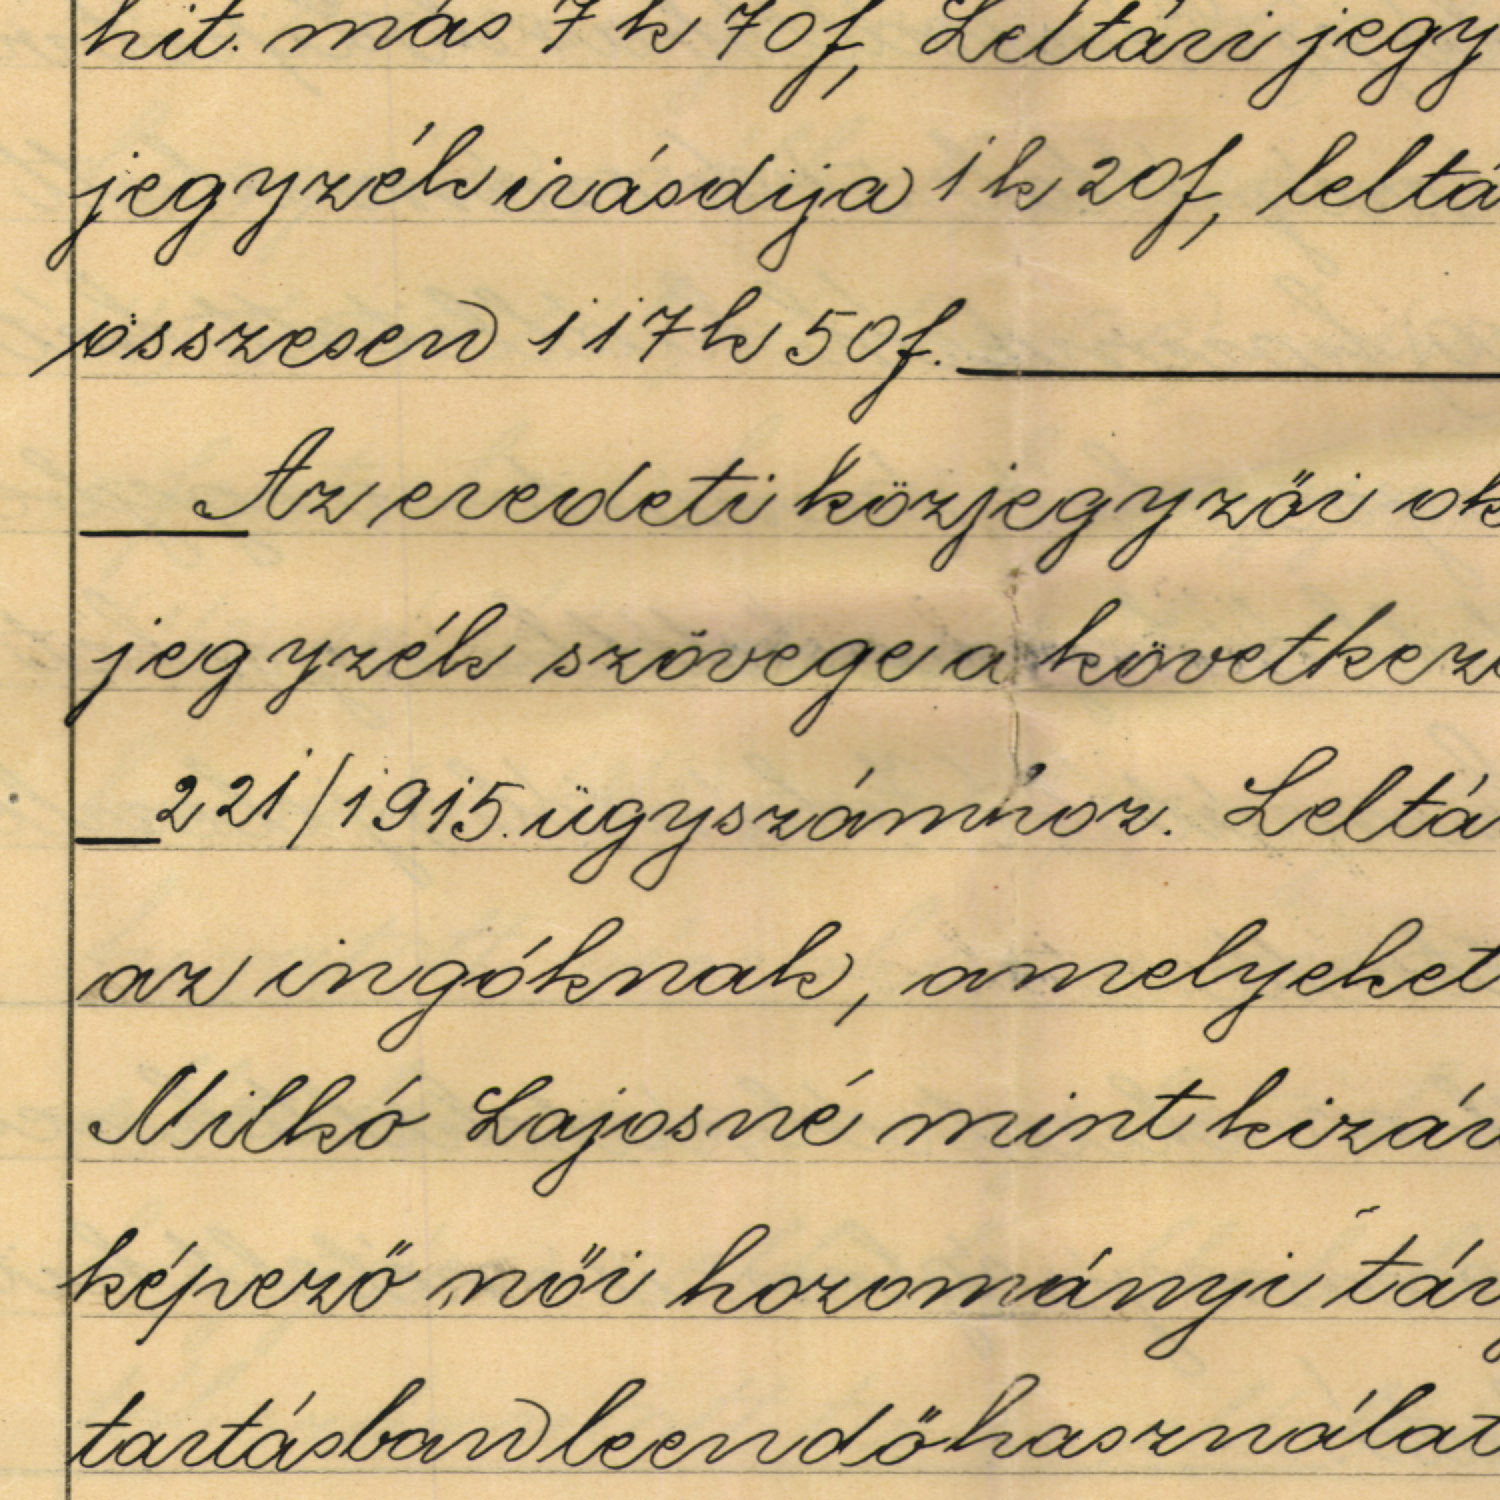 hit. más 7 k 70 f, Leltári jegy
jegyzék irásdija 1 k 20 f, leltá
összesen 117 k 50 f.
Az eredeti közjegyzői ok
jegyzék szövege a következő
221/1915. ügyszámhoz. Leltá
az ingóknak, amelyeket
Milkó Lajosné mint kizár
képező női hozományi tár
tartásban leendő használat